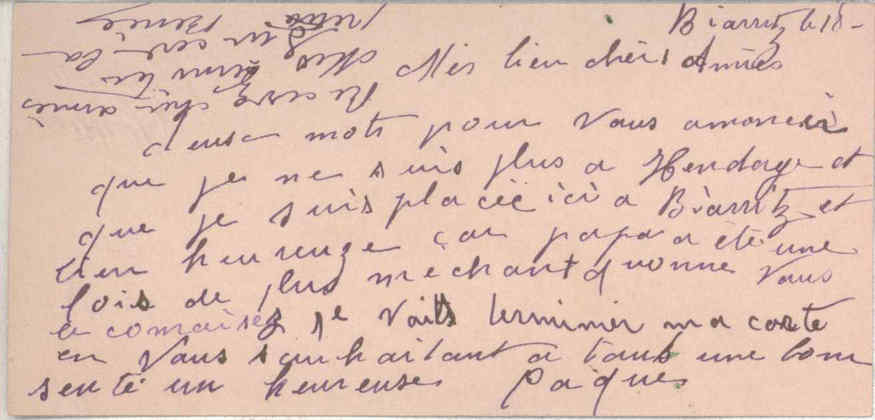 Biarritz le 18-
Mes bien chères Amies
deux mots pour vous anoncer
que je ne suis plus a Hendaye et
que je suis placée ici a Biarritz et
bien heureuze car papa a été une
fois de plus méchant quonne vous
le conaisez je vaits terminer ma carte
en vous souhaitant a tous une bonn
senté un heureuses Paques
Recevez cher amies